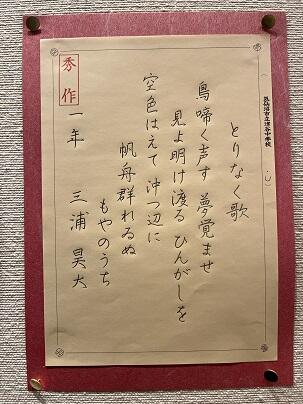 とりなく歌
鳥啼く声す 夢覚ませ
見よ明け渡る ひんがしを
空色はえて 沖つ辺に
帆舟群れゐぬ
もやのうち
秀作
一年 三浦 昊大